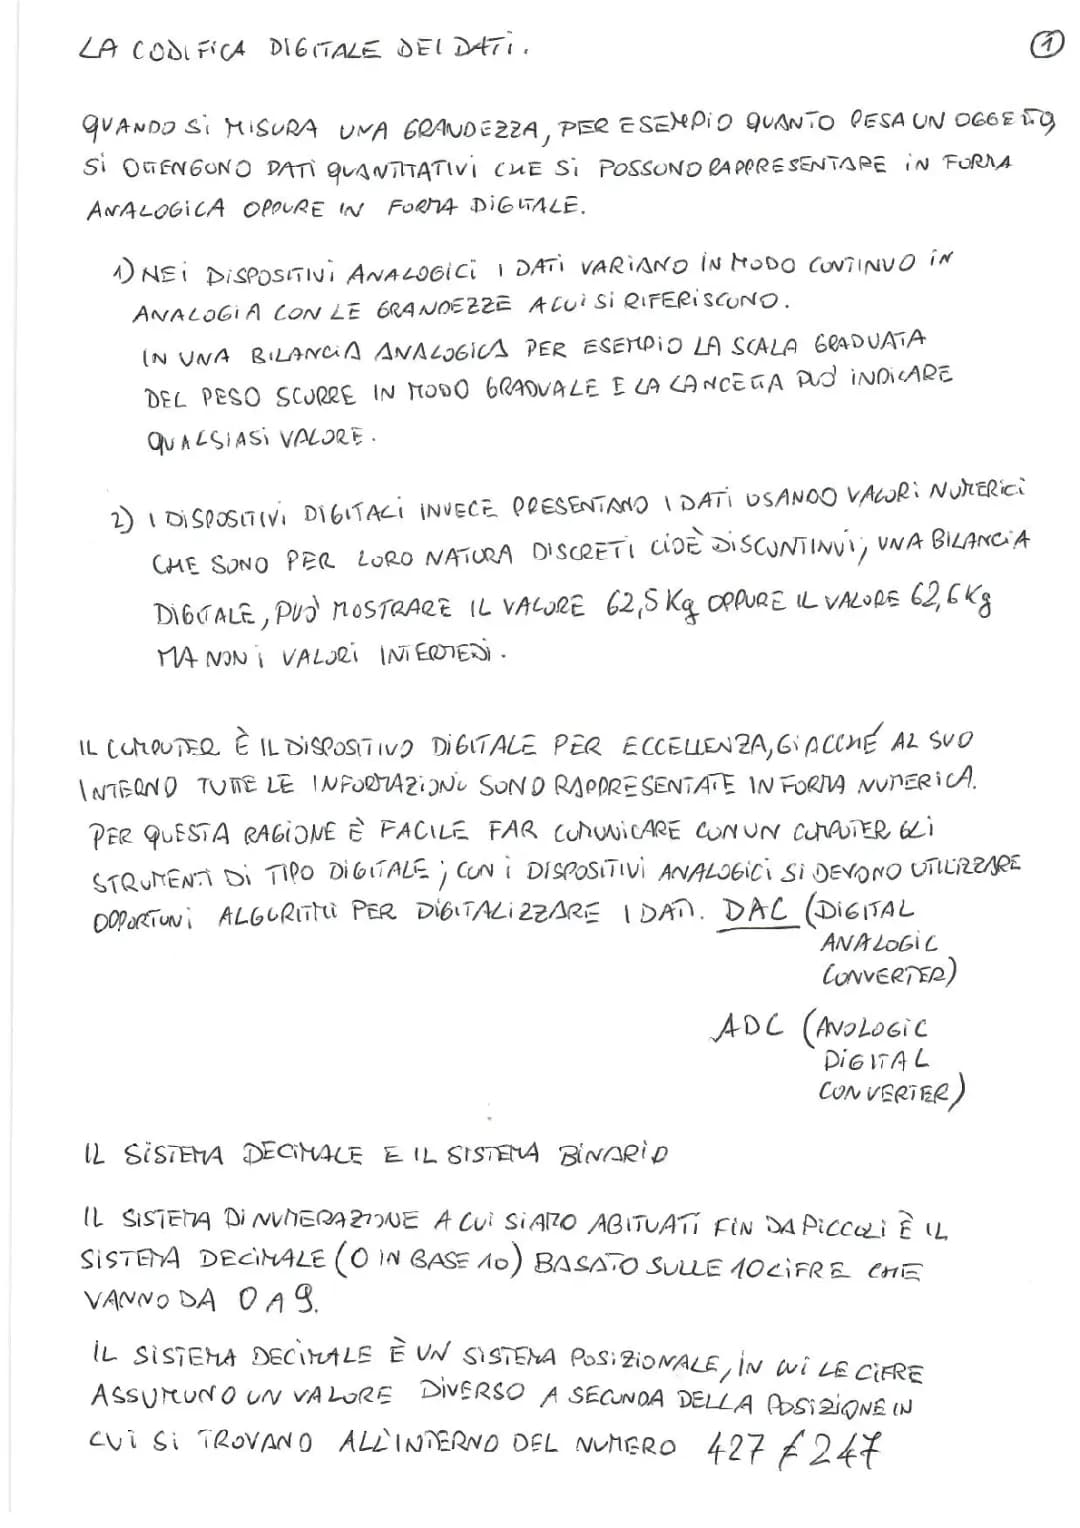 LA CODIFICA DIGITALE DEI DATI.
1
QUANDO SI MISURA UNA GRANDEZZA, PER ESEMPIO QUANTO PESA UN OGGETTO
SI OTTENGONO DATI QUANTITATIVI CHE SI POSSONO RAPPRESENTARE IN FORMA
ANALOGICA OPPURE IN FORMA DIGITALE.
1) NEI DISPOSITIVI ANALOGICI I DATI VARIANO IN MODO CONTINUO IN
ANALOGIA CON LE GRANDEZZE A CUI SI RIFERISCONO.
IN UNA BILANCIA ANALOGICA PER ESEMPIO LA SCALA GRADUATA
DEL PESO SCORRE IN MODO GRADUALE E LA LANCETTA PUÒ INDICARE
QUALSIASI VALORE.
2) I DISPOSITIVI DIGITALI INVECE PRESENTANO I DATI USANDO VALORI NUMERICI
CHE SONO PER LORO NATURA DISCRETI CIOÈ DISCONTINUI; UNA BILANCIA
DIGITALE, PUÒ MOSTRARE IL VALORE 62,5 Kg OPPURE IL VALORE 62,6 Kg
MA NON I VALORI INTERMEDI.
IL COMPUTER È IL DISPOSITIVO DIGITALE PER ECCELLENZA, GIACCHÉ AL SUO
INTERNO TUTTE LE INFORMAZIONI SONO RAPPRESENTATE IN FORMA NUMERICA.
PER QUESTA RAGIONE È FACILE FAR COMUNICARE CON UN COMPUTER GLI
STRUMENTI DI TIPO DIGITALE; CON I DISPOSITIVI ANALOGICI SI DEVONO UTILIZZARE
OPPORTUNI ALGORITMI PER DIGITALIZZARE I DATI. DAC (DIGITAL
ANALOGIC
CONVERTER)
ADC (ANOLOGIC
DIGITAL
CONVERTER)
IL SISTEMA DECIMALE E IL SISTEMA BINARIO
IL SISTEMA DI NUMERAZIONE A CUI SIAMO ABITUATI FIN DA PICCOLI È IL
SISTEMA DECIMALE (O IN BASE 10) BASATO SULLE 10 CIFRE CHE
VANNO DA 0 A 9.
IL SISTEMA DECIMALE È UN SISTEMA POSIZIONALE, IN CUI LE CIFRE
ASSUMONO UN VALORE DIVERSO A SECONDA DELLA POSIZIONE IN
CUI SI TROVANO ALL'INTERNO DEL NUMERO 427 ≠ 247